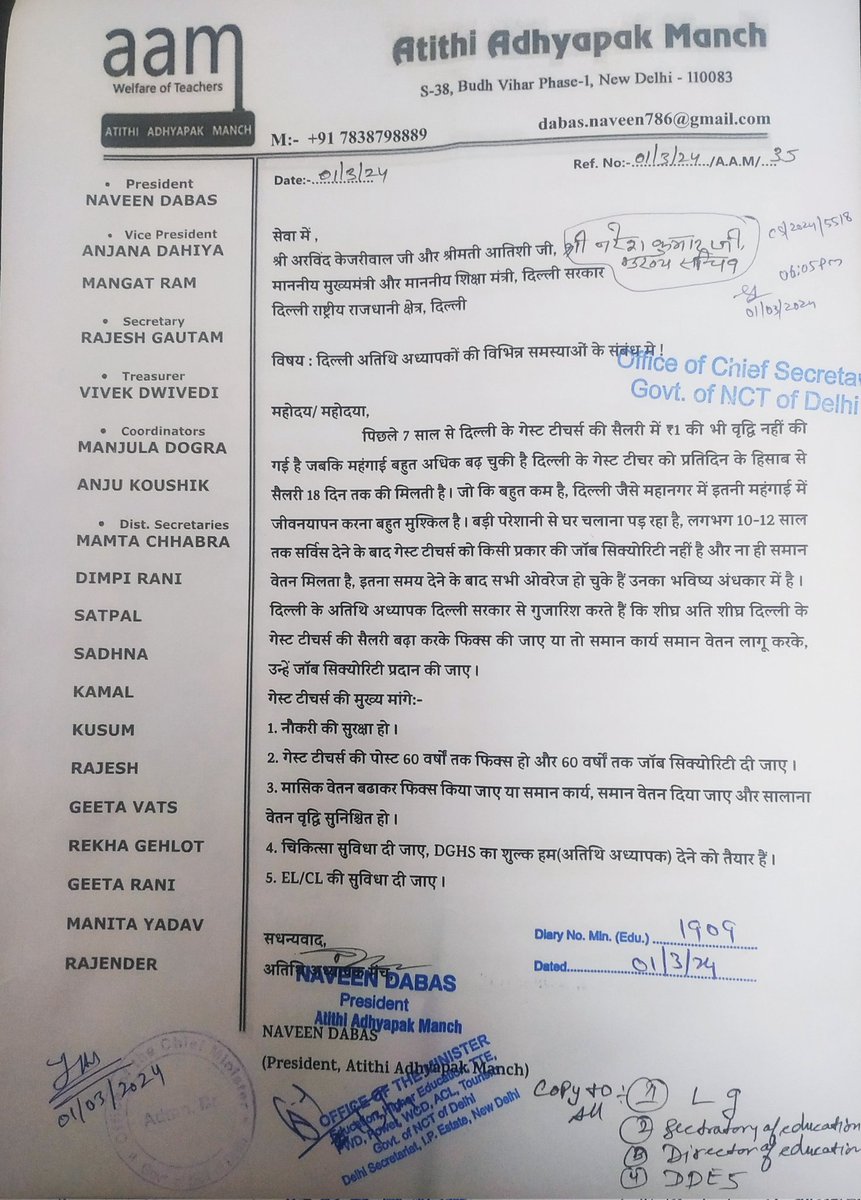 aam
Welfare of Teachers
ATITHI ADHYAPAK MANCH
Atithi Adhyapak Manch
S-38, Budh Vihar Phase-1, New Delhi - 110083
M:- +91 7838798889
dabas.naveen786@gmail.com
• President
NAVEEN DABAS
• Vice President
ANJANA DAHIYA
MANGAT RAM
• Secretary
RAJESH GAUTAM
• Treasurer
VIVEK DWIVEDI
• Coordinators
MANJULA DOGRA
ANJU KOUSHIK
• Dist. Secretaries
MAMTA CHHABRA
DIMPI RANI
SATPAL
SADHNA
KAMAL
KUSUM
RAJESH
GEETA VATS
REKHA GEHLOT
GEETA RANI
MANITA YADAV
RAJENDER
Date:-..01/3/24
Ref. No:-..01/3/24../A.A.M/...35
सेवा में ,
श्री अरविंद केजरीवाल जी और श्रीमती आतिशी जी, श्री नरेश कुमार जी,
माननीय मुख्यमंत्री और माननीय शिक्षा मंत्री, दिल्ली सरकार मुख्य सचिव
दिल्ली राष्ट्रीय राजधानी क्षेत्र, दिल्ली
CS/2024/5518
06:05pm
01/03/2024
विषय : दिल्ली अतिथि अध्यापकों की विभिन्न समस्याओं के संबंध मे !
Office of Chief Secreta
Govt. of NCT of Delhi
महोदय/ महोदया,
पिछले 7 साल से दिल्ली के गेस्ट टीचर्स की सैलरी में ₹1 की भी वृद्धि नहीं की
गई है जबकि महंगाई बहुत अधिक बढ़ चुकी है दिल्ली के गेस्ट टीचर को प्रतिदिन के हिसाब से
सैलरी 18 दिन तक की मिलती है। जो कि बहुत कम है, दिल्ली जैसे महानगर में इतनी महंगाई में
जीवनयापन करना बहुत मुश्किल है। बड़ी परेशानी से घर चलाना पड़ रहा है, लगभग 10-12 साल
तक सर्विस देने के बाद गेस्ट टीचर्स को किसी प्रकार की जॉब सिक्योरिटी नहीं है और ना ही समान
वेतन मिलता है, इतना समय देने के बाद सभी ओवरेज हो चुके हैं उनका भविष्य अंधकार में है।
दिल्ली के अतिथि अध्यापक दिल्ली सरकार से गुजारिश करते हैं कि शीघ्र अति शीघ्र दिल्ली के
गेस्ट टीचर्स की सैलरी बढ़ा करके फिक्स की जाए या तो समान कार्य समान वेतन लागू करके,
उन्हें जॉब सिक्योरिटी प्रदान की जाए।
गेस्ट टीचर्स की मुख्य मांगे:-
1. नौकरी की सुरक्षा हो।
2. गेस्ट टीचर्स की पोस्ट 60 वर्षों तक फिक्स हो और 60 वर्षों तक जॉब सिक्योरिटी दी जाए।
3. मासिक वेतन बढाकर फिक्स किया जाए या समान कार्य, समान वेतन दिया जाए और सालाना
वेतन वृद्धि सुनिश्चित हो।
4. चिकित्सा सुविधा दी जाए, DGHS का शुल्क हम(अतिथि अध्यापक) देने को तैयार हैं।
5. EL/CL की सुविधा दी जाए।
सधन्यवाद,
अतिथि अध्यापक मंच,
NAVEEN DABAS
President
Atithi Adhyapak Manch
NAVEEN DABAS
(President, Atithi Adhyapak Manch)
Diary No. Min. (Edu.) 1909
Dated 01/3/24
OFFICE OF THE MINISTER
Education, Higher Education, TTE,
PWD, Power, WCD, ACL, Tourism
Govt. of NCT of Delhi
Delhi Secretariat, I.P. Estate, New Delhi
01/03/2024
the Chief Minister
Copy to :- ① Lg
All
② Sectratory of education
③ Director of education
④ DDES